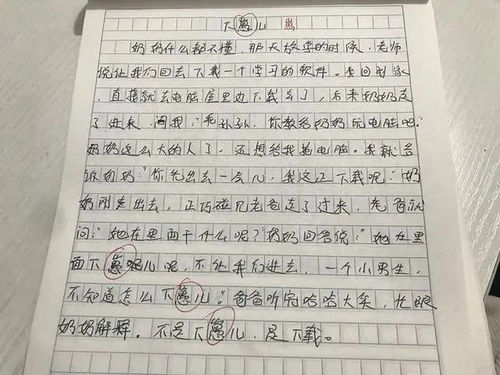 下崽儿 出
奶奶什么都不懂，那天放学的时候，老师
说让我们回去下载一个学习的软件。我回到家，
直接就去电脑屋里边下载去了，后来奶奶走
了进来，问我：“老孙子，你教给奶奶玩电脑吧。”
奶奶这么大的人了，还想给我抢电脑。我就告
诉奶奶：“你先出去一会儿，我这正下载呢。”奶
奶刚走出去，正巧碰见老爸走了过来，老爸就
问：“她在里面干什么呢？”奶奶回答说：“她在里
面下崽儿呢，不让我们进去，一个小男生，
不知道怎么下崽儿。”爸爸听完哈哈大笑，忙跟
奶奶解释，不是下崽儿，是下载。